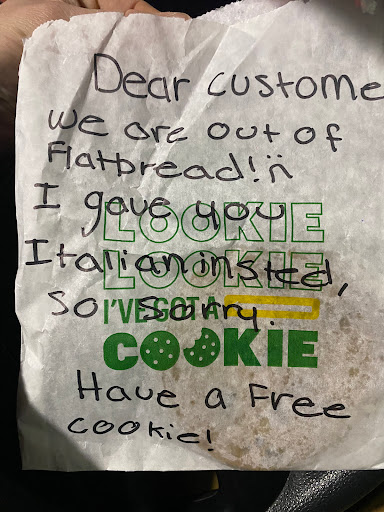 Dear custome
we are out of
Flatbread! :(
I gave you
LOOKIE
Italian insteed,
LOOKIE
so sorry.
I'VE GOT A
COOKIE
Have a Free
cookie!